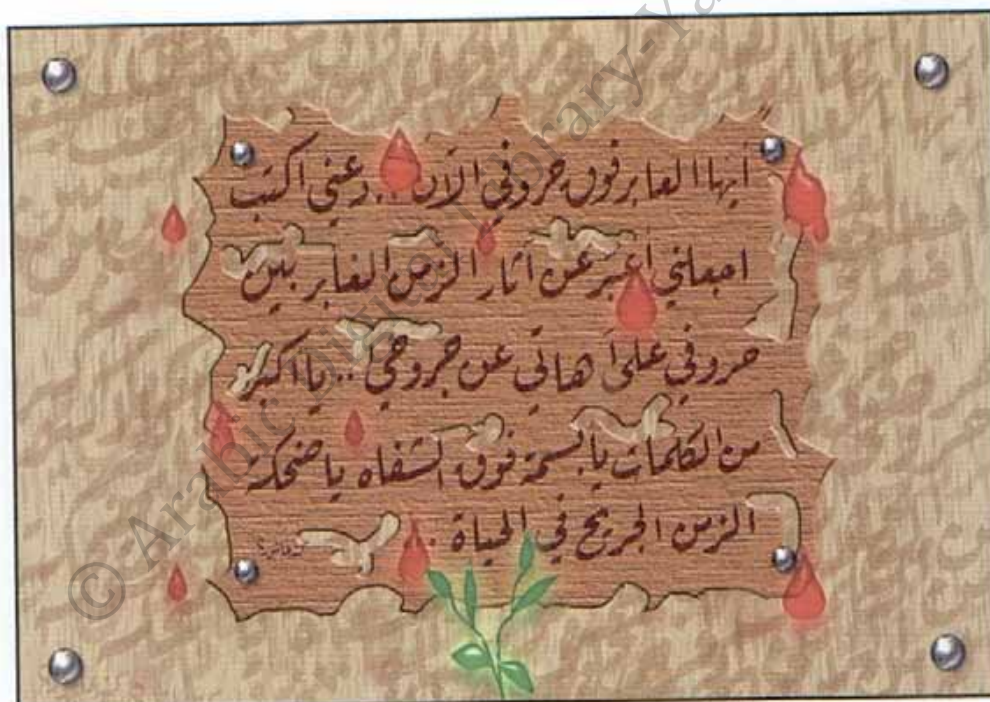 ايها العابر فوق حروفي الآن .. دعني اكتب
اجعلني اعبر عن آثار الزمن الغابر بين
حروفي على آهاتي عن جروحي .. يا اكبر
من الكلمات يا بسمة فوق الشفاه يا ضحكة
الزمن الجريح في الحياة ..
© Arabic Digital Library-Ya